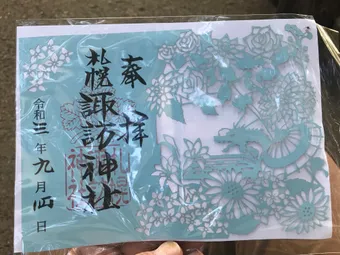 奉拝
札幌諏訪神社
令和三年九月四日